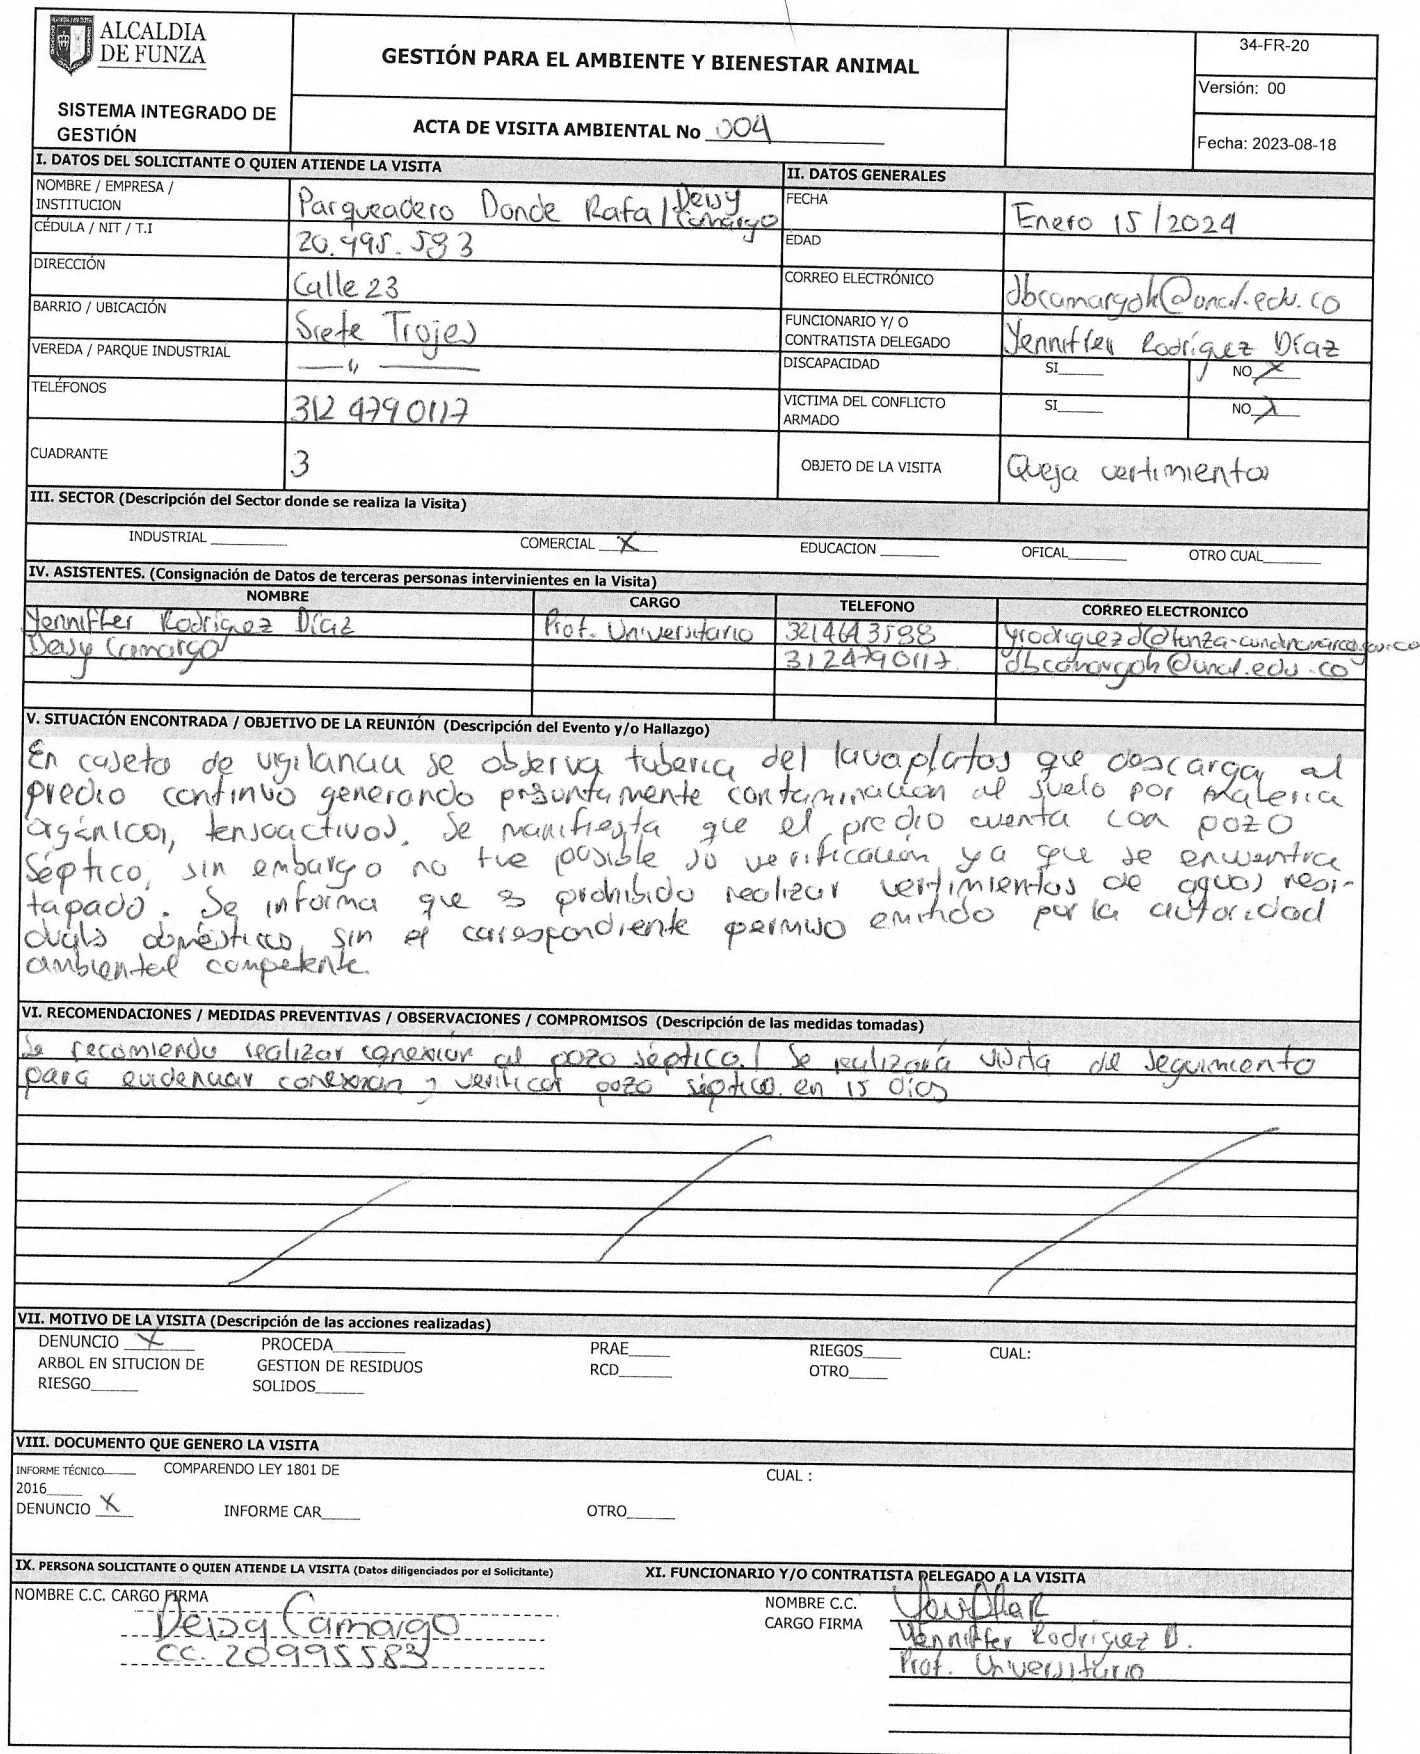 ALCALDIA
DE FUNZA
SISTEMA INTEGRADO DE
GESTIÓN
GESTIÓN PARA EL AMBIENTE Y BIENESTAR ANIMAL
ACTA DE VISITA AMBIENTAL No 004
34-FR-20
Versión: 00
Fecha: 2023-08-18
I. DATOS DEL SOLICITANTE O QUIEN ATIENDE LA VISITA
NOMBRE / EMPRESA /
INSTITUCION
Parqueadero Donde Rafa / Deisy
Camargo
CÉDULA / NIT / T.I
20.995.583
DIRECCIÓN
Calle 23
BARRIO / UBICACIÓN
Siete Trojes
VEREDA / PARQUE INDUSTRIAL
— " —
TELÉFONOS
312 4790117
CUADRANTE
3
II. DATOS GENERALES
FECHA
Enero 15 / 2024
EDAD
CORREO ELECTRÓNICO
dbcamargoh@unal.edu.co
FUNCIONARIO Y/ O
CONTRATISTA DELEGADO
Yenniffer Rodríguez Díaz
DISCAPACIDAD
SI____ NO X
VICTIMA DEL CONFLICTO
ARMADO
SI____ NO X
OBJETO DE LA VISITA
Queja vertimientos
III. SECTOR (Descripción del Sector donde se realiza la Visita)
INDUSTRIAL ____ COMERCIAL X EDUCACION ____ OFICAL____ OTRO CUAL____
IV. ASISTENTES. (Consignación de Datos de terceras personas intervinientes en la Visita)
NOMBRE CARGO TELEFONO CORREO ELECTRONICO
Yenniffer Rodríguez Díaz Prof. Universitario 3214643588 yrodriguezd@funza-cundinamarca.gov.co
Deisy Camargo 3124790117 dbcamargoh@unal.edu.co
V. SITUACIÓN ENCONTRADA / OBJETIVO DE LA REUNIÓN (Descripción del Evento y/o Hallazgo)
En caseta de vigilancia se observa tuberia del lavaplatos que descarga al
predio continuo generando presuntamente contaminación al suelo por materia
orgánica, tensoactivos. Se manifiesta que el predio cuenta con pozo
séptico, sin embargo no fue posible su verificación ya que se encuentra
tapado. Se informa que es prohibido realizar vertimientos de aguas resi-
duales domésticas, sin el correspondiente permiso emitido por la autoridad
ambiental competente.
VI. RECOMENDACIONES / MEDIDAS PREVENTIVAS / OBSERVACIONES / COMPROMISOS (Descripción de las medidas tomadas)
Se recomienda realizar conexión al pozo séptico. / Se realizará visita de seguimiento
para evidenciar conexión y verificar pozo séptico en 15 días
VII. MOTIVO DE LA VISITA (Descripción de las acciones realizadas)
DENUNCIO X PROCEDA____ PRAE____ RIEGOS____ CUAL:
ARBOL EN SITUCION DE GESTION DE RESIDUOS RCD____ OTRO____
RIESGO____ SOLIDOS____
VIII. DOCUMENTO QUE GENERO LA VISITA
INFORME TÉCNICO____ COMPARENDO LEY 1801 DE CUAL :
2016____
DENUNCIO X INFORME CAR____ OTRO____
IX. PERSONA SOLICITANTE O QUIEN ATIENDE LA VISITA (Datos diligenciados por el Solicitante)
NOMBRE C.C. CARGO FIRMA
Deisy Camargo
CC. 20995583
XI. FUNCIONARIO Y/O CONTRATISTA DELEGADO A LA VISITA
NOMBRE C.C.
CARGO FIRMA
Yenniffer Rodriguez D.
Prof. Universitario